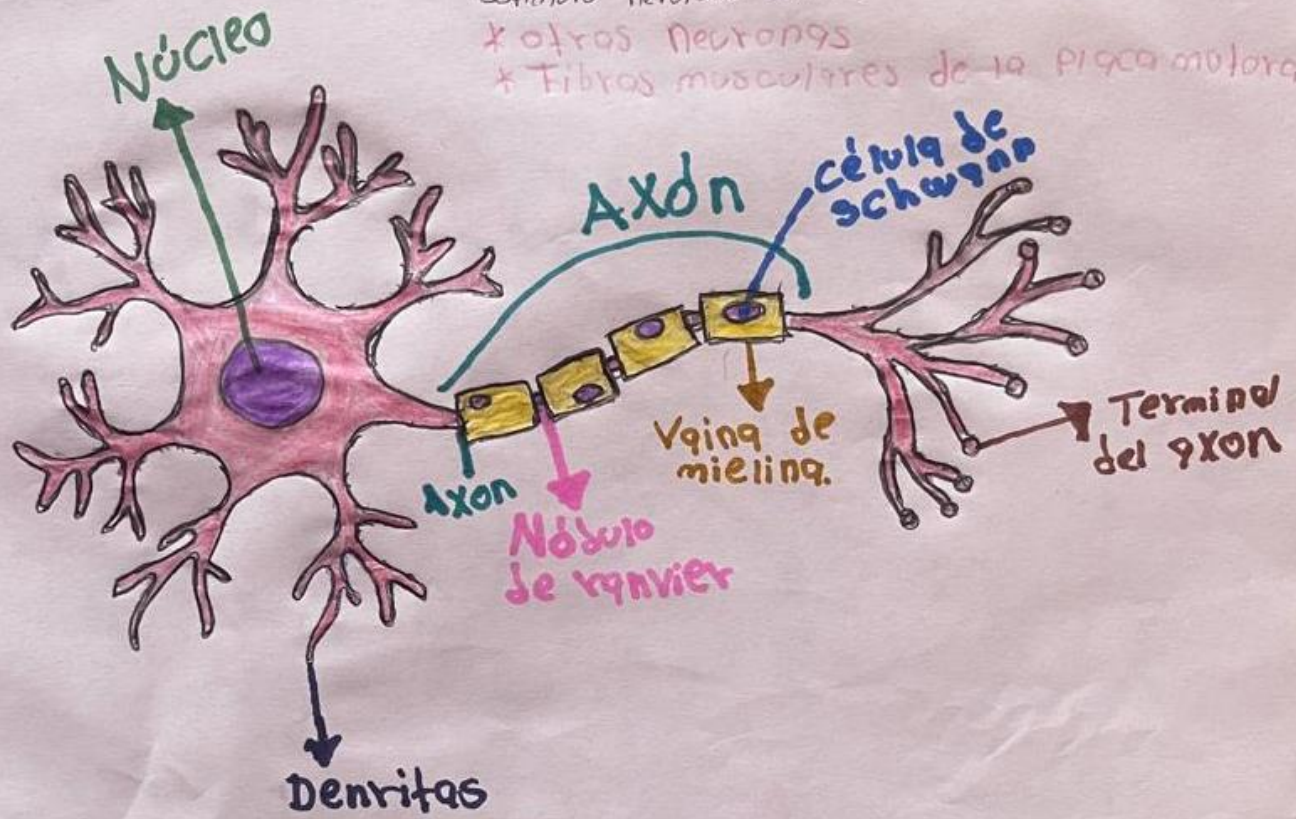 * otros neuronas
* Fibras musculares de la placa motora
Núcleo
Axón
célula de
schwann
Axon
Nódulo
de ranvier
Vaina de
mielina.
Terminal
del axon
Denritas